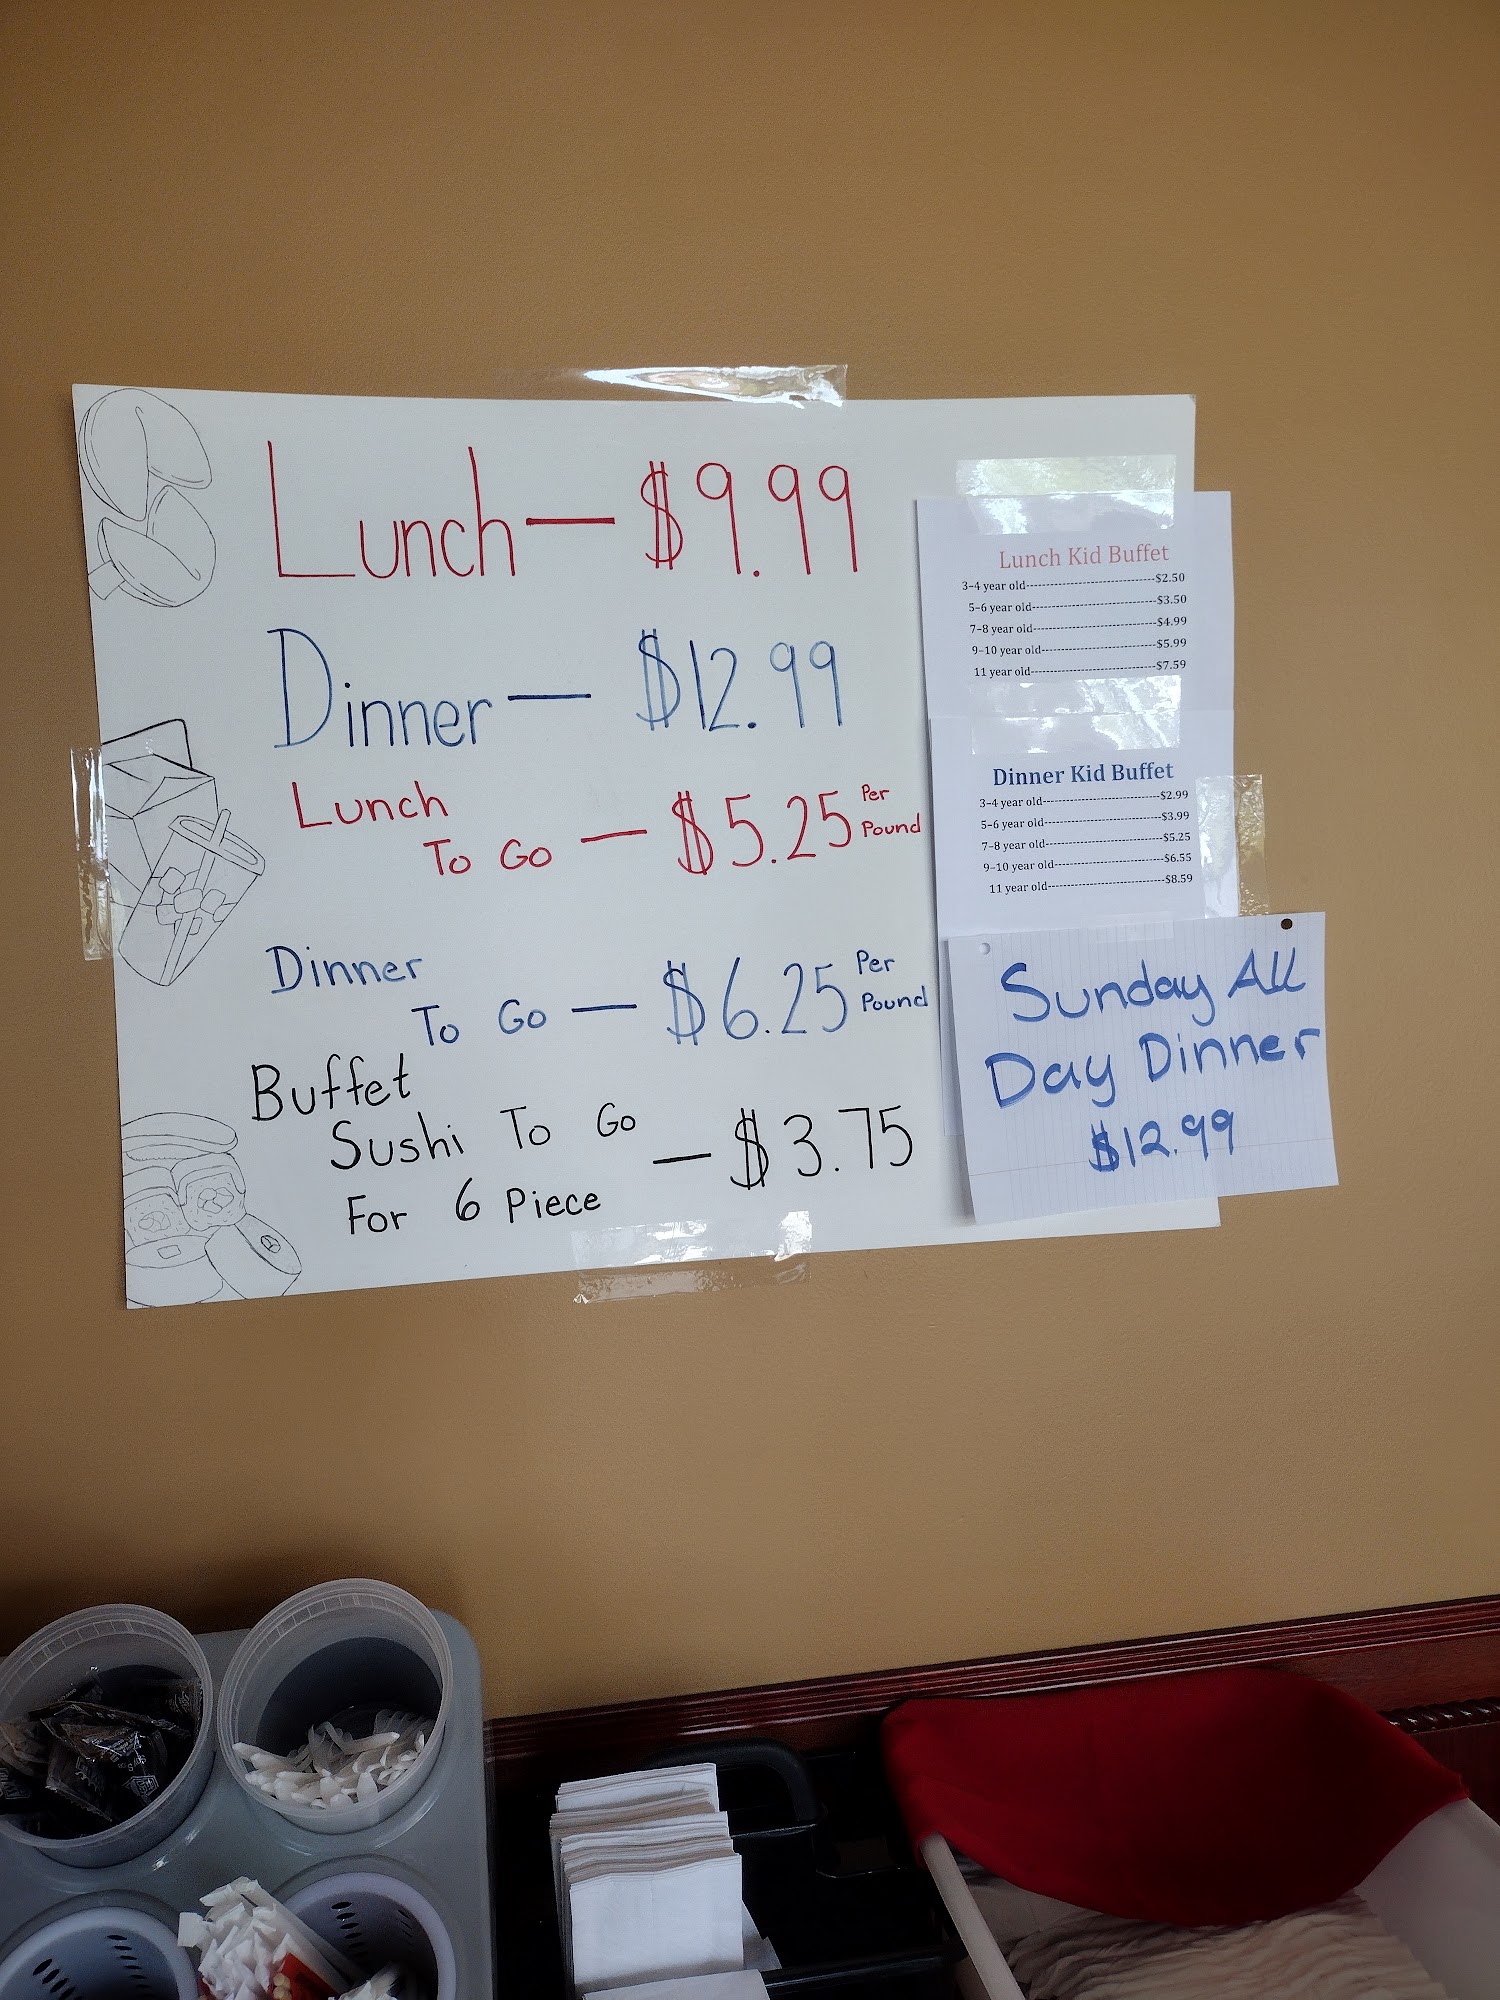 Lunch — $9.99
Dinner — $12.99
Lunch
To Go — $5.25 Per Pound
Dinner
To Go — $6.25 Per Pound
Buffet
Sushi To Go — $3.75
For 6 Piece
Lunch Kid Buffet
3-4 year old--------------------------------$2.50
5-6 year old-------------------------------$3.50
7-8 year old-------------------------------$4.99
9-10 year old----------------------------$5.99
11 year old-------------------------------$7.59
Dinner Kid Buffet
3-4 year old-----------------------------$2.99
5-6 year old-----------------------------$3.99
7-8 year old-----------------------------$5.25
9-10 year old---------------------------$6.55
11 year old-----------------------------$8.59
Sunday All
Day Dinner
$12.99